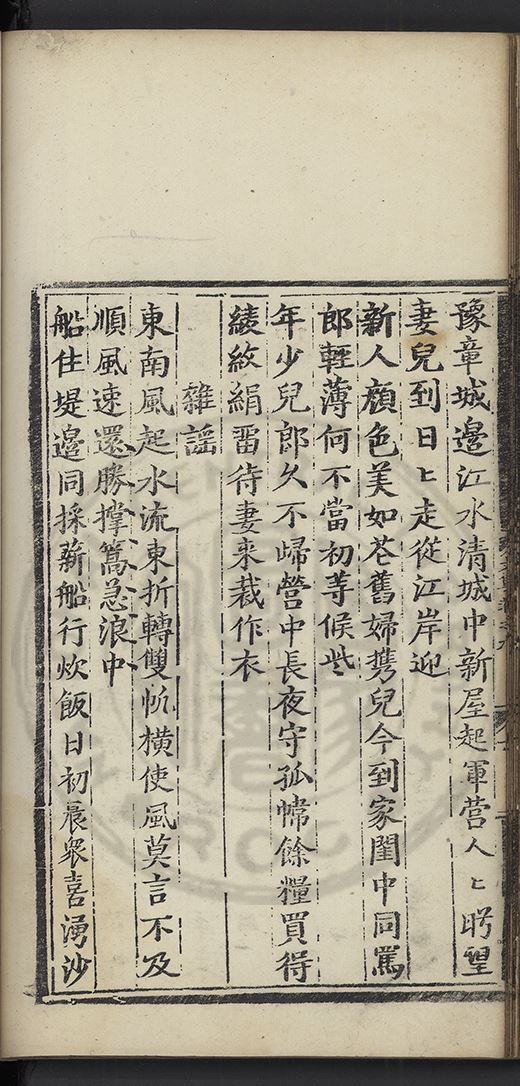 豫章城邉江水清城中新屋起軍营人〻盻望
妻兒到日〻走從江岸迎
新人顔色美如花舊婦携兒今到家閨中同罵
郎輕薄何不當初等候些
年少兒郎久不歸營中長夜守孤幃餘糧買得
綾紋絹畱待妻来裁作衣
雜謡
東南風起水流東折轉雙帆橫使風莫言不及
順風速還勝撑篙急浪中
船住堤邉同採薪船行炊飯日初晨衆喜湧沙